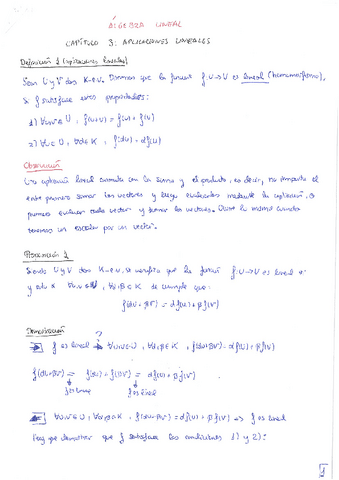 ÁLGEBRA LINEAL
CAPÍTULO 3: APLICACIONES LINEALES
Definición 1 (aplicaciones lineales)
Sean U y V dos K-e.v. Diremos que la función f: U→V es lineal (homomorfismo),
si f satisface estas propiedades:
1) ∀u,v ∈ U, f(u+v) = f(u) + f(v)
2) ∀u ∈ U, ∀α ∈ K, f(αu) = αf(u)
Observación
Una aplicación lineal conmuta con la suma y el producto, es decir, no importa el
entre primero sumar los vectores y luego evaluarlos mediante la aplicación, o
primero evaluar cada vector y sumar los vectores. Ocurre lo mismo cuando
tenemos un escalar por un vector.
Proposición 1
Siendo U y V dos K-e.v, se verifica que la función f: U→V es lineal
y solo si ∀u,v ∈ U, ∀α,β ∈ K se cumple que:
f(αu + βv) = αf(u) + βf(v)
Demostración
?
⇒ f es lineal ⇒ ∀u,v ∈ U, ∀α,β ∈ K, f(αu+βv) = αf(u) + βf(v)
f(αu + βv) = f(αu) + f(βv) = αf(u) + βf(v)
f es lineal f es lineal
∀u,v ∈ U, ∀α,β ∈ K, f(αu+βv) = αf(u) + βf(v) ⇒ f es lineal
Hay que demostrar que f satisface las condiciones 1) y 2):
1